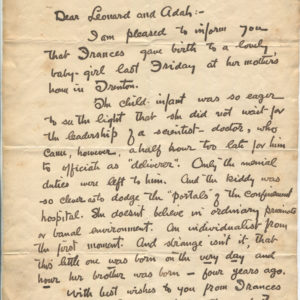 Dear Leonard and Adah:-
I am pleased to inform you
that Frances gave birth to a lovely
baby-girl last Friday at her mothers
home in Trenton.
The child infant was so eager
to see the light that she did not wait for
the leadership of a scientist-doctor, who
came, however, a half hour too late for him
to officiate as "deliverer". Only the menial
duties were left to him. And the kiddy was
so clever as to dodge the "portals" of the confinement
hospital. She doesnt believe in ordinary
or banal environment. An individualist from
the first moment. And strange isn't it, that
this little one was born on the very day and
hour her brother was born - four years ago.
With best wishes to you from Frances